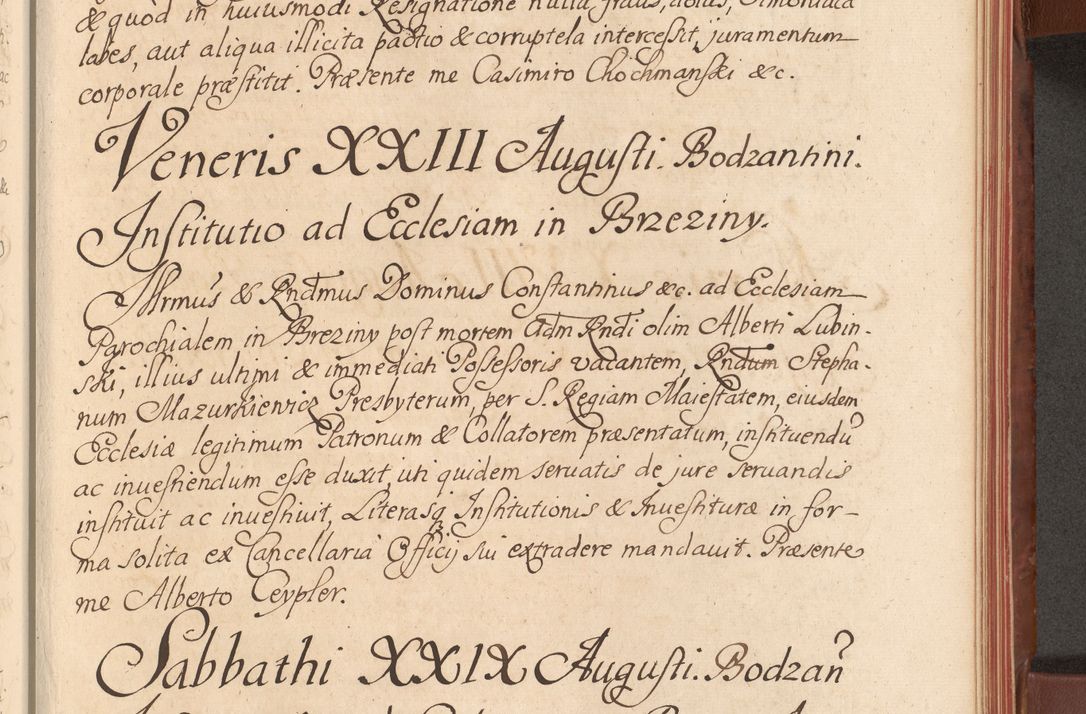 & quod in huiusmodi Resignatione nulla fraus, dolus, Simoniaca
labes, aut aliqua illicita pactio & corruptela intercessit, juramentum
corporale præstitit. Præsente me Casimiro Chochmanski &c.
Veneris XXIII Augusti. Bodzantini.
Institutio ad Ecclesiam in Brzeziny.
Illrmus & Rndmus Dominus Constantinus &c. ad Ecclesiam
Parochialem in Breziny post mortem Adm Rndi olim Alberti Lubin-
ski, illius ultimi & immediati Possessoris vacantem, Rndum Stepha-
num Mazurkiewicz Presbyterum, per S. Regiam Maiestatem, eiusdem
Ecclesiæ legitimum Patronum & Collatorem præsentatum, instituendū
ac investiendum esse duxit, uti quidem servatis de jure servandis
instituit ac investivit, Literasq Institutionis & Investituræ in for-
ma solita ex Cancellaria Officij sui extradere mandavit. Præsente
me Alberto Ceypler.
Sabbathi XXIX Augusti. Bodzan̄